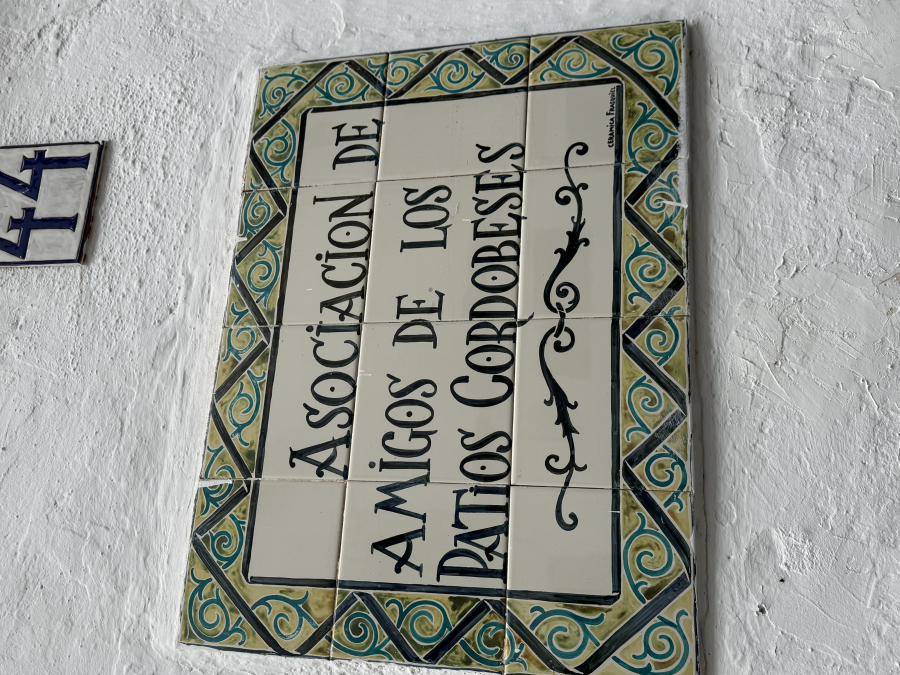 44
ASOCiACiON DE
AMiGOS DE LOS
PATiOS CORDOBESES
CERAMICA